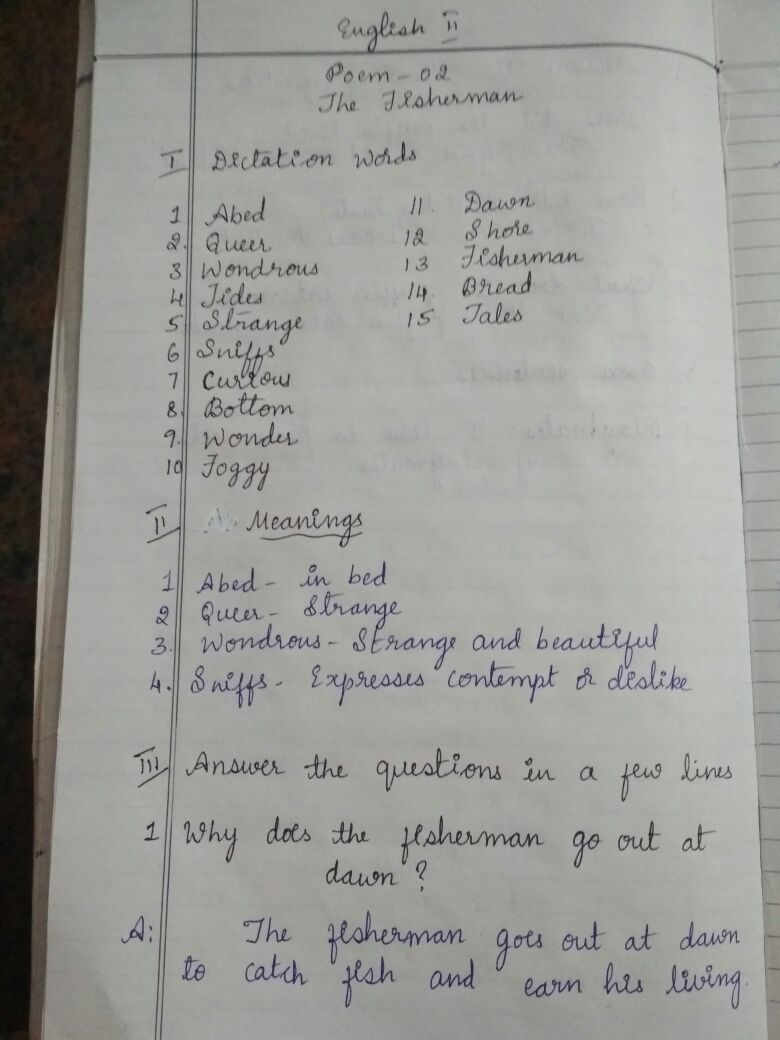 English II
Poem - 02
The Fisherman
I Dictation words
1 Abed
2. Queer
3 Wondrous
4 Tides
5 Strange
6 Sniffs
7 Curious
8. Bottom
9. Wonder
10 Foggy
11. Dawn
12 Shore
13 Fisherman
14. Bread
15 Tales
II Meanings
1 Abed - in bed
2 Queer - Strange
3. Wondrous - Strange and beautiful
4. Sniffs - Expresses contempt or dislike
III Answer the questions in a few lines
1 Why does the fisherman go out at
dawn ?
A: The fisherman goes out at dawn
to catch fish and earn his living.